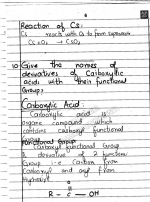 Reaction of Cs:
Cs reacts with O2 to form superoxide
Cs + O2 → CsO2
Give the names of
derivatives of Carboxylic
acids with their functional
Group?
Carboxylic Acid:
Carboxylic acid is
organic compound which
contains carboxyl functional
Functional Group:
Carboxyl functional Group
is derivative of 2 functional
Group i.e Carbon from
Carbonyl and oxy from
Hydroxyl
R - C - OH